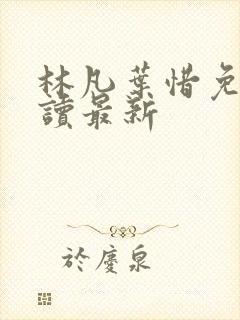 林凡葉惜免
讀最新
於慶泉